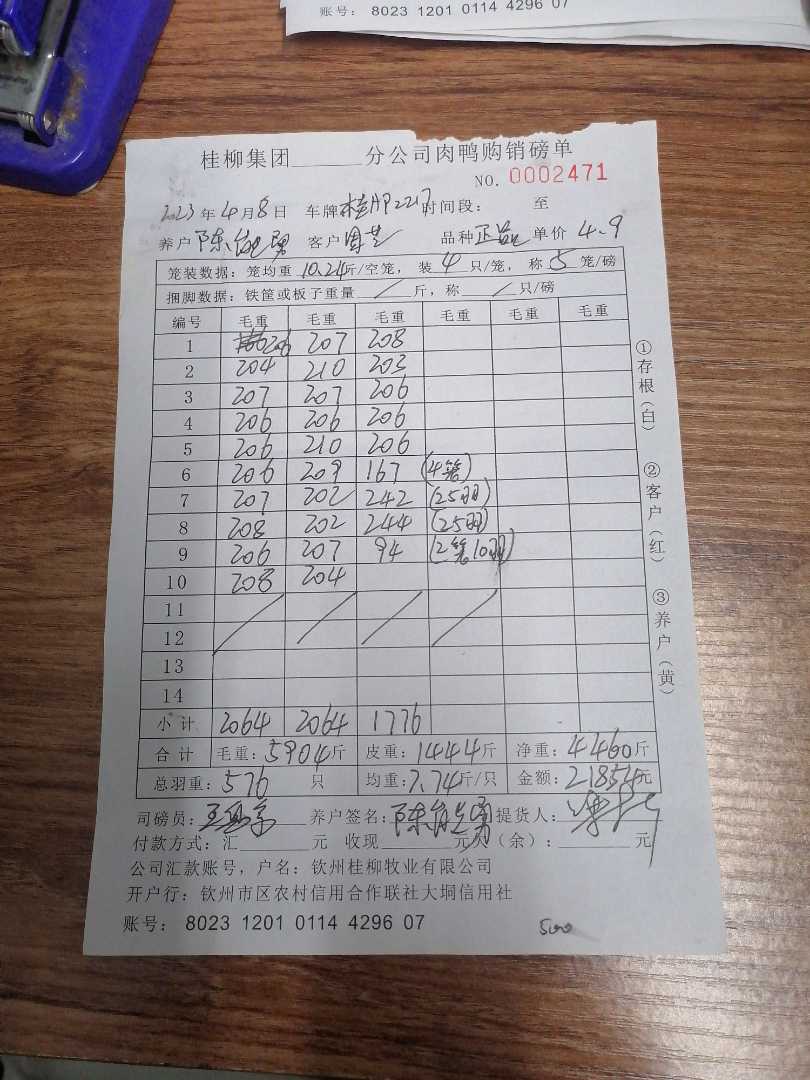 账号: 8023 1201 0114 4296 07
桂柳集团______分公司肉鸭购销磅单
NO. 0002471
2023年4月8日 车牌桂AP2217 时间段: 至
养户 陈 客户 周芝 品种 正品 单价 4.9
笼装数据: 笼均重 10.24 斤/空笼, 装 4 只/笼, 称 5 笼/磅
捆脚数据: 铁筐或板子重量 / 斤, 称 / 只/磅
编号 毛重 毛重 毛重 毛重 毛重 毛重
1 206 207 208
2 204 210 203
3 207 207 206
4 206 206 206
5 206 210 206
6 206 209 167 (4笼)
7 207 202 242 (25羽)
8 208 202 244 (25羽)
9 206 207 94 (2笼10羽)
10 208 204
11
12
13
14
小计 2064 2064 1776
合计 毛重: 5904斤 皮重: 1444斤 净重: 4460斤
总羽重: 576 只 均重: 7.74斤/只 金额: 21854元
司磅员: 养户签名: 陈 提货人:
付款方式: 汇______元 收现______元 (余): ______元
公司汇款账号, 户名: 钦州桂柳牧业有限公司
开户行: 钦州市区农村信用合作联社大垌信用社
账号: 8023 1201 0114 4296 07
500
①存根(白)
②客户(红)
③养户(黄)